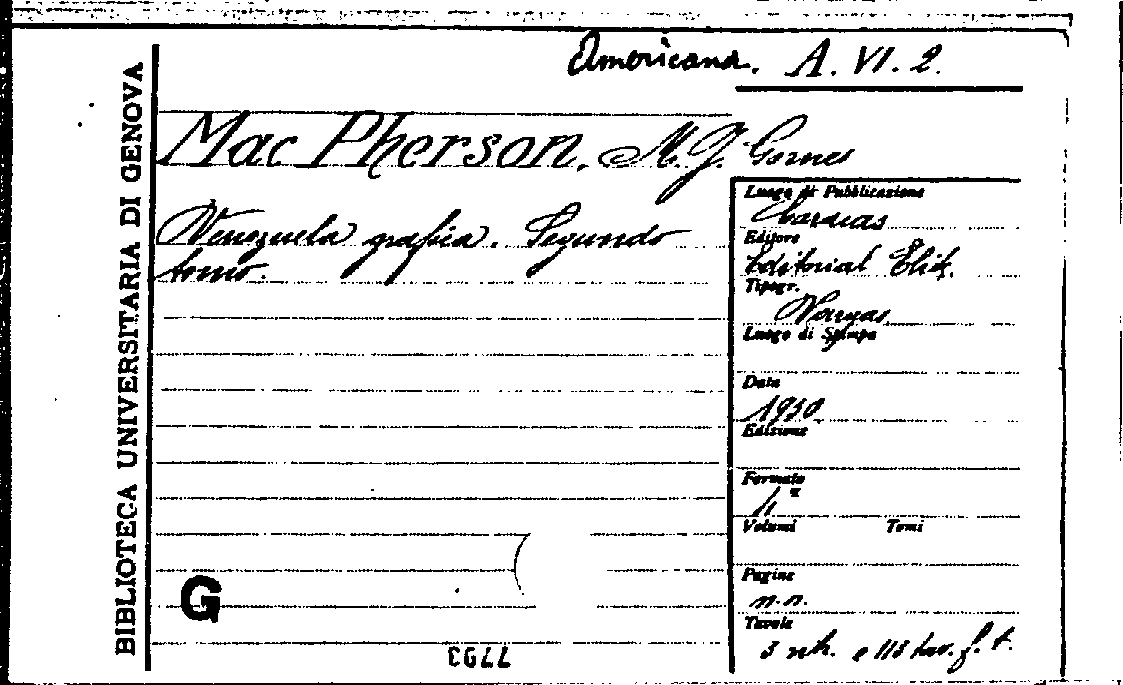 Americana. A. VI. 2.
BIBLIOTECA UNIVERSITARIA DI GENOVA
Mac Pherson, M. J. Gornes
Venezuela grafica. Segundo
tomo.
Luogo di Pubblicazione
Caracas
Editore
Editorial Elite
Tipogr.
Vargas
Luogo di Stampa
Data
1930
Edizione
Formato
Volumi Tomi
Pagine
n.n.
Tavole
3 e 113 tav. f. t.
G
7793